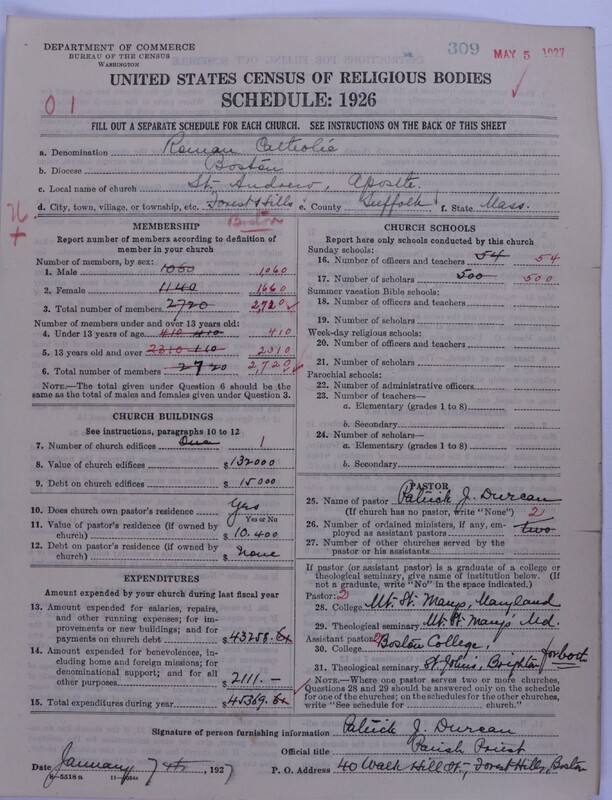 DEPARTMENT OF COMMERCE
BUREAU OF THE CENSUS
WASHINGTON
309 MAY 5 1927
UNITED STATES CENSUS OF RELIGIOUS BODIES
SCHEDULE: 1926
01
FILL OUT A SEPARATE SCHEDULE FOR EACH CHURCH. SEE INSTRUCTIONS ON THE BACK OF THIS SHEET
a. Denomination Roman Catholic
b. Diocese Boston
c. Local name of church St. Andrew, Apostle.
d. City, town, village, or township, etc. Forest Hills e. County Suffolk f. State Mass.
Boston
MEMBERSHIP
Report number of members according to definition of
member in your church
Number of members, by sex:
1. Male 1060 1060
2. Female 1140 1660
3. Total number of members 2720 2,720
Number of members under and over 13 years old:
4. Under 13 years of age 410 410 410
5. 13 years old and over 2310 410 2310
6. Total number of members 2720 2,720
NOTE.—The total given under Question 6 should be the
same as the total of males and females given under Question 3.
CHURCH BUILDINGS
See instructions, paragraphs 10 to 12
7. Number of church edifices One 1
8. Value of church edifices $ 132000
9. Debt on church edifices $ 15000
10. Does church own pastor's residence? Yes
Yes or No
11. Value of pastor's residence (if owned by
church) $ 10.400
12. Debt on pastor's residence (if owned by
church) $ None
EXPENDITURES
Amount expended by your church during last fiscal year
13. Amount expended for salaries, repairs,
and other running expenses; for im-
provements or new buildings; and for
payments on church debt $ 43258.
14. Amount expended for benevolences,
including home and foreign missions; for
denominational support; and for all
other purposes $ 2111.—
15. Total expenditures during year $ 45369.
CHURCH SCHOOLS
Report here only schools conducted by this church
Sunday schools:
16. Number of officers and teachers 54 54
17. Number of scholars 500 500
Summer vacation Bible schools:
18. Number of officers and teachers
19. Number of scholars
Week-day religious schools:
20. Number of officers and teachers
21. Number of scholars
Parochial schools:
22. Number of administrative officers
23. Number of teachers—
a. Elementary (grades 1 to 8)
b. Secondary
24. Number of scholars—
a. Elementary (grades 1 to 8)
b. Secondary
PASTOR
25. Name of pastor Patrick J. Durcan
(If church has no pastor, write "None") 2
26. Number of ordained ministers, if any, em-
ployed as assistant pastors two
27. Number of other churches served by the
pastor or his assistants
If pastor (or assistant pastor) is a graduate of a college or
theological seminary, give name of institution below. (If
not a graduate, write "No" in the space indicated.)
Pastor: 2
28. College Mt. St. Marys, Maryland
29. Theological seminary Mt. St. Marys Md.
Assistant pastor: 2
30. College Boston College,
for both
31. Theological seminary St Johns, Brighton
NOTE.—Where one pastor serves two or more churches,
Questions 28 and 29 should be answered only on the schedule
for one of the churches; on the schedules for the other churches,
write "See schedule for church."
Signature of person furnishing information Patrick J. Durcan
Official title Parish Priest
Date January 7th, 1927 P. O. Address 40 Walk Hill St., Forest Hills, Boston